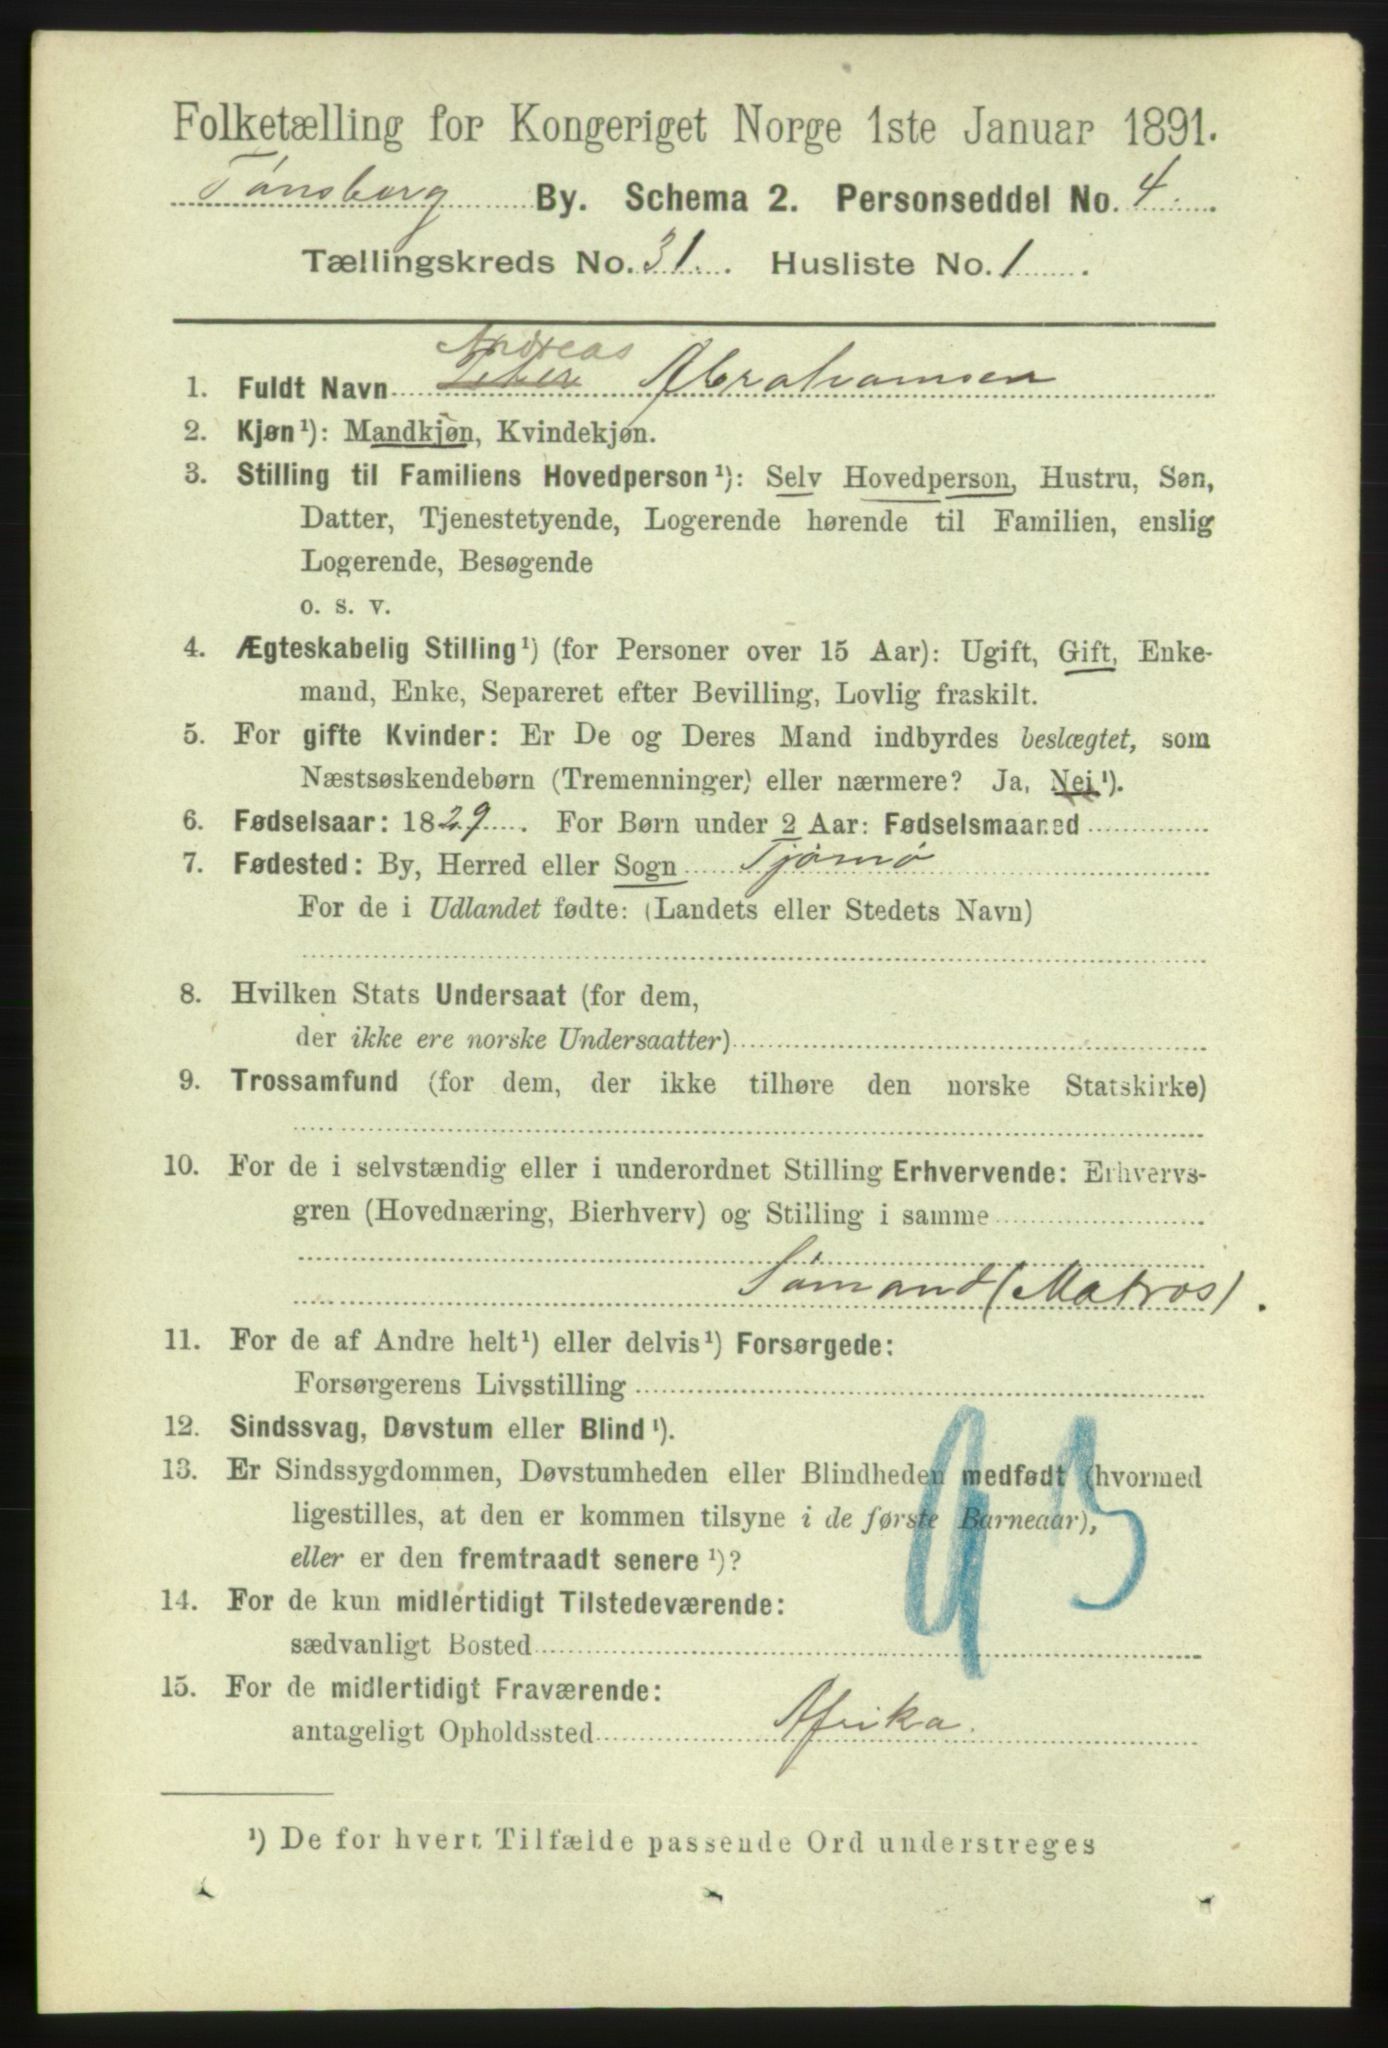 Folketælling for Kongeriget Norge 1ste Januar 1891.
Tønsberg By. Schema 2. Personseddel No. 4.
Tællingskreds No. 31. Husliste No. 1
Andreas
1. Fuldt Navn Peter Abrahamsen
2. Kjøn¹): Mandkjøn, Kvindekjøn.
3. Stilling til Familiens Hovedperson¹): Selv Hovedperson, Hustru, Søn,
Datter, Tjenestetyende, Logerende hørende til Familien, enslig
Logerende, Besøgende
o. s. v.
4. Ægteskabelig Stilling¹) (for Personer over 15 Aar): Ugift, Gift, Enke-
mand, Enke, Separeret efter Bevilling, Lovlig fraskilt.
5. For gifte Kvinder: Er De og Deres Mand indbyrdes beslægtet, som
Næstsøskendebørn (Tremenninger) eller nærmere? Ja, Nei¹).
6. Fødselsaar: 1829. For Børn under 2 Aar: Fødselsmaaned
7. Fødested: By, Herred eller Sogn Tjømø
For de i Udlandet fødte: (Landets eller Stedets Navn)
8. Hvilken Stats Undersaat (for dem,
der ikke ere norske Undersaatter)
9. Trossamfund (for dem, der ikke tilhøre den norske Statskirke)
10. For de i selvstændig eller i underordnet Stilling Erhvervende: Erhvervs-
gren (Hovednæring, Bierhverv) og Stilling i samme
Sømand (Matros).
11. For de af Andre helt¹) eller delvis¹) Forsørgede:
Forsørgerens Livsstilling
12. Sindssvag, Døvstum eller Blind¹).
13. Er Sindssygdommen, Døvstumheden eller Blindheden medfødt (hvormed
ligestilles, at den er kommen tilsyne i de første Barneaar),
eller er den fremtraadt senere¹)?
93
14. For de kun midlertidigt Tilstedeværende:
sædvanligt Bosted
15. For de midlertidigt Fraværende:
antageligt Opholdssted Afrika.
¹) De for hvert Tilfælde passende Ord understreges